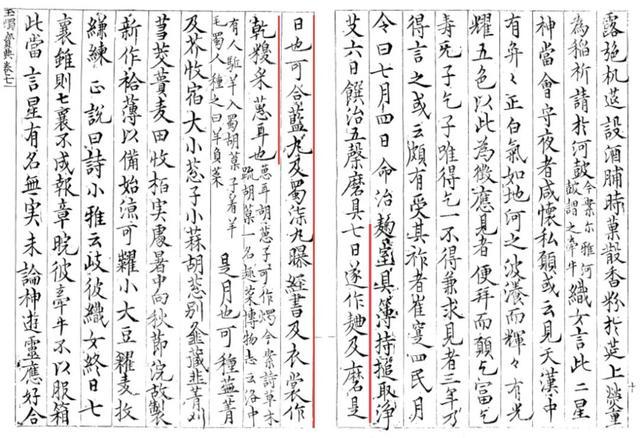 露施机莚設酒脯時菓散香粉於莚上熒重
為稲祈請於河鼓今案尓雅河鼓謂之牽牛織女言此二星
神當會守夜者咸懷私願或云見天漢中
有弈々正白氣如地河之波瀁而輝々有光
耀五色以此為徴應見者便拜而願乞富乞
壽无子乞子唯得乞一不得兼求見者三年乃
得言之或云頗有受其祚者崔寔四民月
令曰七月四日命治麹室具簿持槌取淨
艾六日饌治五榖磨具七日遂作麹及磨是
日也可合藍丸及蜀柒丸曝經書及衣裳作
乾糗采葸耳也葸耳胡葸子可作燭今案詩草木䟽胡菓一名趍菜博物志云洛中
有人駈羊入蜀胡菓子着羊毛蜀人種之曰羊負菜是月也可種藍菁
及芥牧宿大小葱子小蒜胡葱別韰藏韭菁刈
芻茭蕒麦田收柏実處暑中向秋節浣故製
新作袷薄以備始涼可糶小大豆糴麦收
縑練正説曰詩小雅云歧彼織女終日七
襄雖則七襄不成報章睆彼牽牛不以服箱
此當言星有名無実未論神遊靈應好合
玉燭寳典卷七